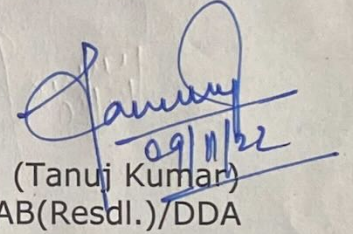 09/11/22
(Tanuj Kumar)
AB(Resdl.)/DDA